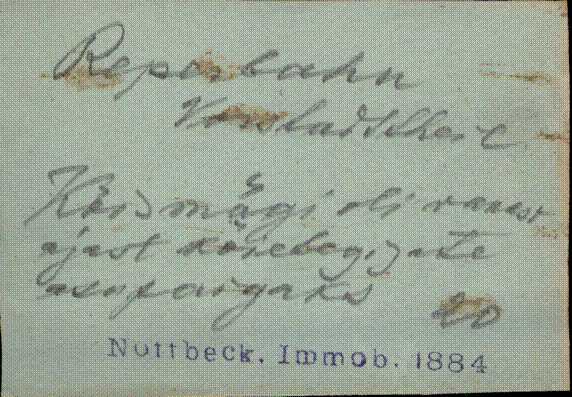 Reperbahn
Vorstadttheil
Köismägi oli vanast
ajast köietegijate
asupaigaks
20
Nottbeck. Immob. 1884